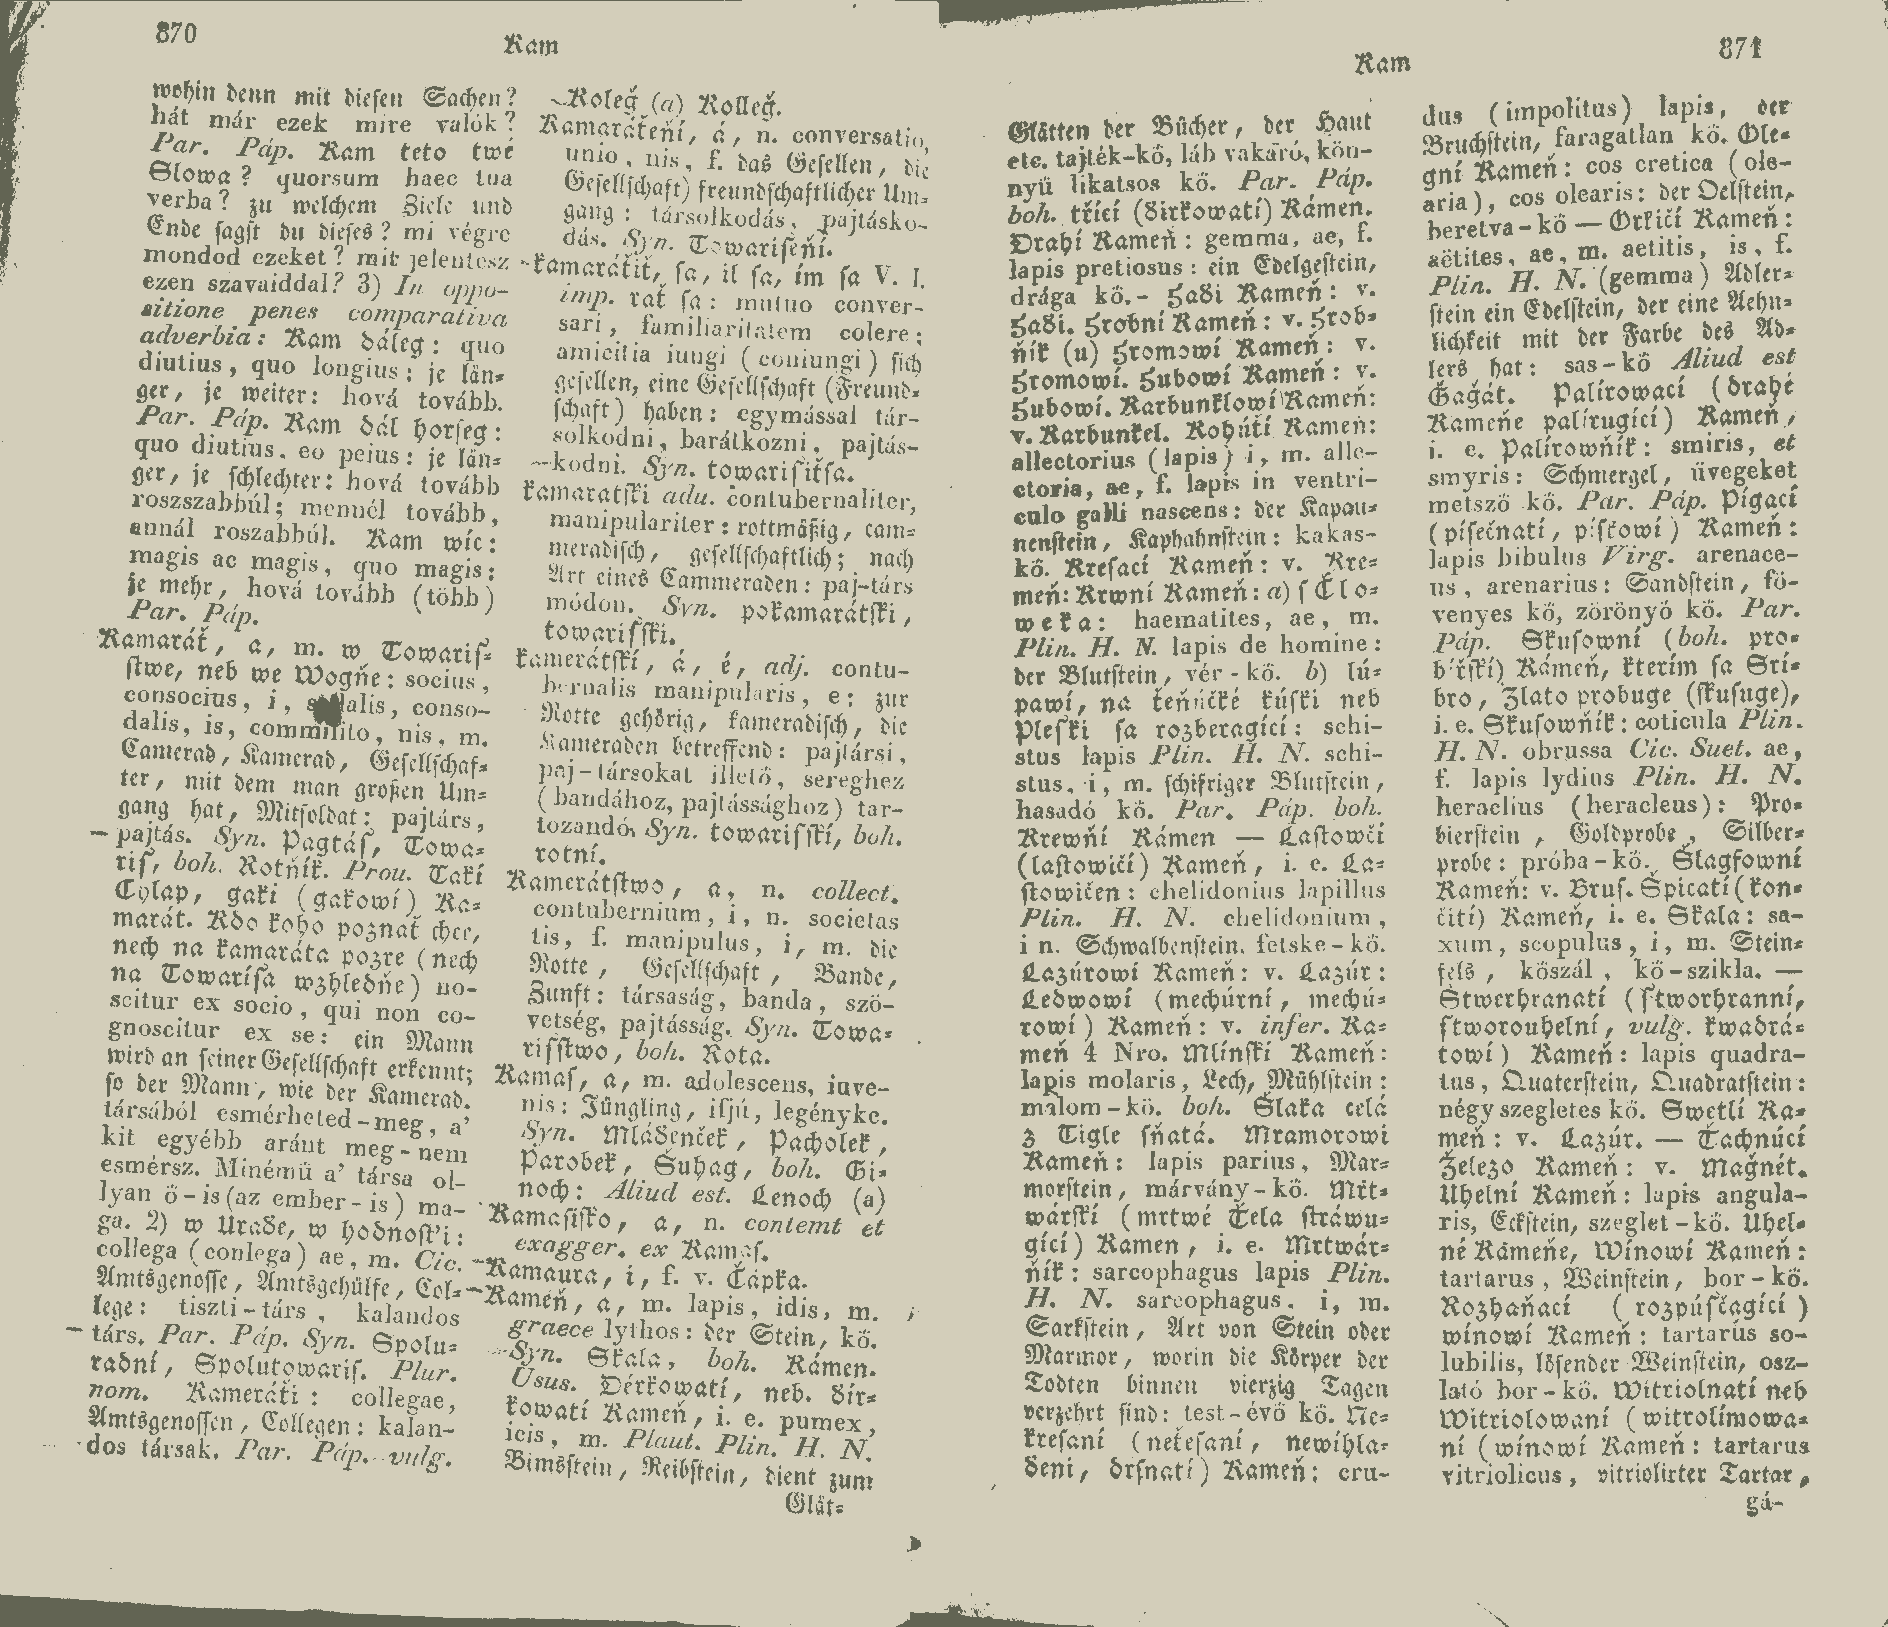 870
Kam
wohin denn mit diesen Sachen?
hát már ezek mire valók?
Par. Páp. Kam teto twé
Slowa? quorsum haec tua
verba? zu welchem Ziele und
Ende sagst du dieses? mi végre
mondod ezeket? mit jelentesz
ezen szavaiddal? 3) In oppo-
sitione penes comparativa
adverbia: Kam dáleg: quo
diutius, quo longius: je län-
ger, je weiter: hová tovább.
Par. Páp. Kam dál horseg:
quo diutius, eo peius: je län-
ger, je schlechter: hová tovább
roszszabbúl; mennél tovább,
annál roszabbúl. Kam wíc:
magis ac magis, quo magis:
je mehr, hová tovább (több)
Par. Páp.
Kamarát, a, m. w Towaris-
stwe, neb we Wogňe: socius,
consocius, i, sodalis, conso-
dalis, is, commilito, nis, m.
Camerad, Kamerad, Gesellschaf-
ter, mit dem man großen Um-
gang hat, Mitsoldat: pajtárs,
pajtás. Syn. Pagtás, Towa-
ris, boh. Rotňík. Prov. Takí
Chlap, gaki (gakowí) Ka-
marát. Kdo koho poznať chce,
nech na kamaráta pozre (nech
na Towarisa wzhledňe) no-
scitur ex socio, qui non co-
gnoscitur ex se: ein Mann
wird an seiner Gesellschaft erkennt;
so der Mann, wie der Kamerad.
társából esmérheted-meg, a'
kit egyébb aránt meg-nem
esmérsz. Minémü a' társa ol-
lyan ő-is (az ember-is) ma-
ga. 2) w Urade, w hodnosťi:
collega (conlega) ae, m. Cic.
Amtsgenosse, Amtsgehülfe, Col-
lege: tiszti-társ, kalandos
társ. Par. Páp. Syn. Spolu-
radní, Spolutowaris. Plur.
nom. Kameráti: collegae,
Amtsgenossen, Collegen: kalan-
dos társak. Par. Páp. vulg.
Koleğ (a) Kolleğ.
Kamaráťeňí, á, n. conversatio,
unio, nis, f. das Gesellen, die
Gesellschaft) freundschaftlicher Um-
gang: társolkodás, pajtásko-
dás. Syn. Towariseňí.
kamarátiť, sa, il sa, ím sa V. I.
imp. rať sa: mutuo conver-
sari, familiaritatem colere;
amicitia iungi (coniungi) sich
gesellen, eine Gesellschaft (Freund-
schaft) haben: egymással tár-
solkodni, barátkozni, pajtás-
kodni. Syn. towarisiťsa.
kamaratski adv. contubernaliter,
manipulariter: rottmäßig, cam-
meradisch, gesellschaftlich; nach
Art eines Cammeraden: paj-társ
módon. Syn. pokamarátski,
towarisski.
kamerátskí, á, é, adj. contu-
bernalis manipularis, e: zur
Rotte gehörig, kameradisch, die
Kameraden betreffend: pajtársi,
paj-társokat illető, sereghez
(bandához, pajtássághoz) tar-
tozandó, Syn. towarisskí, boh.
rotní.
Kamerátstwo, a, n. collect.
contubernium, i, n. societas
tis, f. manipulus, i, m. die
Rotte, Gesellschaft, Bande,
Zunft: társaság, banda, szö-
vetség, pajtásság. Syn. Towa-
risstwo, boh. Rota.
Kamas, a, m. adolescens, iuve-
nis: Jüngling, ifjú, legényke.
Syn. Mládenček, Pacholek,
Parobek, Šuhag, boh. Gi-
noch: Aliud est. Lenoch (a)
Kamasisko, a, n. contemt et
exagger. ex Kamas.
Kamaura, i, f. v. Čápka.
Kameň, a, m. lapis, idis, m.
graece lythos: der Stein, kő.
Syn. Skala, boh. Kámen.
Usus. Dérkowatí, neb. dír-
kowatí Kameň, i. e. pumex,
icis, m. Plaut. Plin. H. N.
Bimsstein, Reibstein, dient zum
Glät-
Kam
871
Glätten der Bücher, der Haut
etc. tajték-kő, láb vakaró, kön-
nyü likatsos kő. Par. Páp.
boh. třící (dirkowatí) Kámen.
Drahí Kameň: gemma, ae, f.
lapis pretiosus: ein Edelgestein,
drága kő. - Hadi Kameň: v.
Hadi. Hrobní Kameň: v. Hrob-
ňík (u) Hromowí Kameň: v.
Hromowí. Hubowí Kameň: v.
Hubowí. Karbunklowí Kameň:
v. Karbunkel. Kohúťí Kameň:
allectorius (lapis) i, m. alle-
ctoria, ae, f. lapis in ventri-
culo galli nascens: der Kapau-
nenstein, Kaphahnstein: kakas-
kő. Kresací Kameň: v. Kre-
meň: Krwní Kameň: a) s Člo-
weka: haematites, ae, m.
Plin. H. N. lapis de homine:
der Blutstein, vér-kő. b) lú-
pawí, na teňičké kúski neb
Pleski sa rozberagící: schi-
stus lapis Plin. H. N. schi-
stus, i, m. schifriger Blutstein,
hasadó kő. Par. Páp. boh.
Krewňí Kámen — Lastowčí
(lastowičí) Kameň, i. e. La-
stowičen: chelidonius lapillus
Plin. H. N. chelidonium,
i n. Schwalbenstein. fetske-kő.
Lazúrowí Kameň: v. Lazúr:
Ledwowí (mechúrní, mechú-
rowí) Kameň: v. infer. Ka-
meň 4 Nro. Mlínski Kameň:
lapis molaris, Lech, Mühlstein:
malom-kő. boh. Šlaka celá
z Tigle sňatá. Mramorowi
Kameň: lapis parius, Mar-
morstein, márvány-kő. Mrt-
wárskí (mrtwé Tela stráwu-
gící) Kamen, i. e. Mrtwár-
ňík: sarcophagus lapis Plin.
H. N. sarcophagus, i, m.
Sarkstein, Art von Stein oder
Marmor, worin die Körper der
Todten binnen vierzig Tagen
verzehrt sind: test-évő kő. Ne-
kresaní (neťesaní, newihla-
deni, drsnatí) Kameň: cru-
dus (impolitus) lapis, der
Bruchstein, faragatlan kő. Ole-
gní Kameň: cos cretica (ole-
aria), cos olearis: der Oelstein,
beretva-kő — Orličí Kameň:
aëtites, ae, m. aetitis, is, f.
Plin. H. N. (gemma) Adler-
stein ein Edelstein, der eine Aehn-
lichkeit mit der Farbe des Ad-
lers hat: sas-kő Aliud est
Ğağát. Palírowací (drahé
Kameňe palírugící) Kameň,
i. e. Palírowňík: smiris, et
smyris: Schmergel, üvegeket
metsző kő. Par. Páp. Pígací
(písečnatí, pískowí) Kameň:
lapis bibulus Virg. arenace-
us, arenarius: Sandstein, fö-
venyes kő, zörönyő kő. Par.
Páp. Skusowní (boh. pro-
bířskí) Kámeň, kterím sa Strí-
bro, Zlato probuge (skusuge),
i. e. Skusowňík: coticula Plin.
H. N. obrussa Cic. Suet. ae,
f. lapis lydius Plin. H. N.
heraclius (heracleus): Pro-
bierstein, Goldprobe, Silber-
probe: próba-kő. Šlagfowní
Kameň: v. Brus. Špicatí (kon-
čití) Kameň, i. e. Skala: sa-
xum, scopulus, i, m. Stein-
fels, kőszál, kő-szikla. —
Štwerhranatí (štworhranní,
štworouhelní, vulg. kwadrá-
towí) Kameň: lapis quadra-
tus, Quaterstein, Quadratstein:
négy szegletes kő. Swetlí Ka-
meň: v. Lazúr. — Tachnúcí
Železo Kameň: v. Mağnét.
Uhelní Kameň: lapis angula-
ris, Eckstein, szeglet-kő. Uhel-
né Kámeňe, Wínowí Kameň:
tartarus, Weinstein, bor-kő.
Rozhaňací (rozpúšťagící)
wínowí Kameň: tartarus so-
lubilis, lösender Weinstein, osz-
lató bor-kő. Witriolnatí neb
Witriolowaní (witrolímowa-
ní (wínowí Kameň: tartarus
vitriolicus, vitriolirter Tartar,
gá-